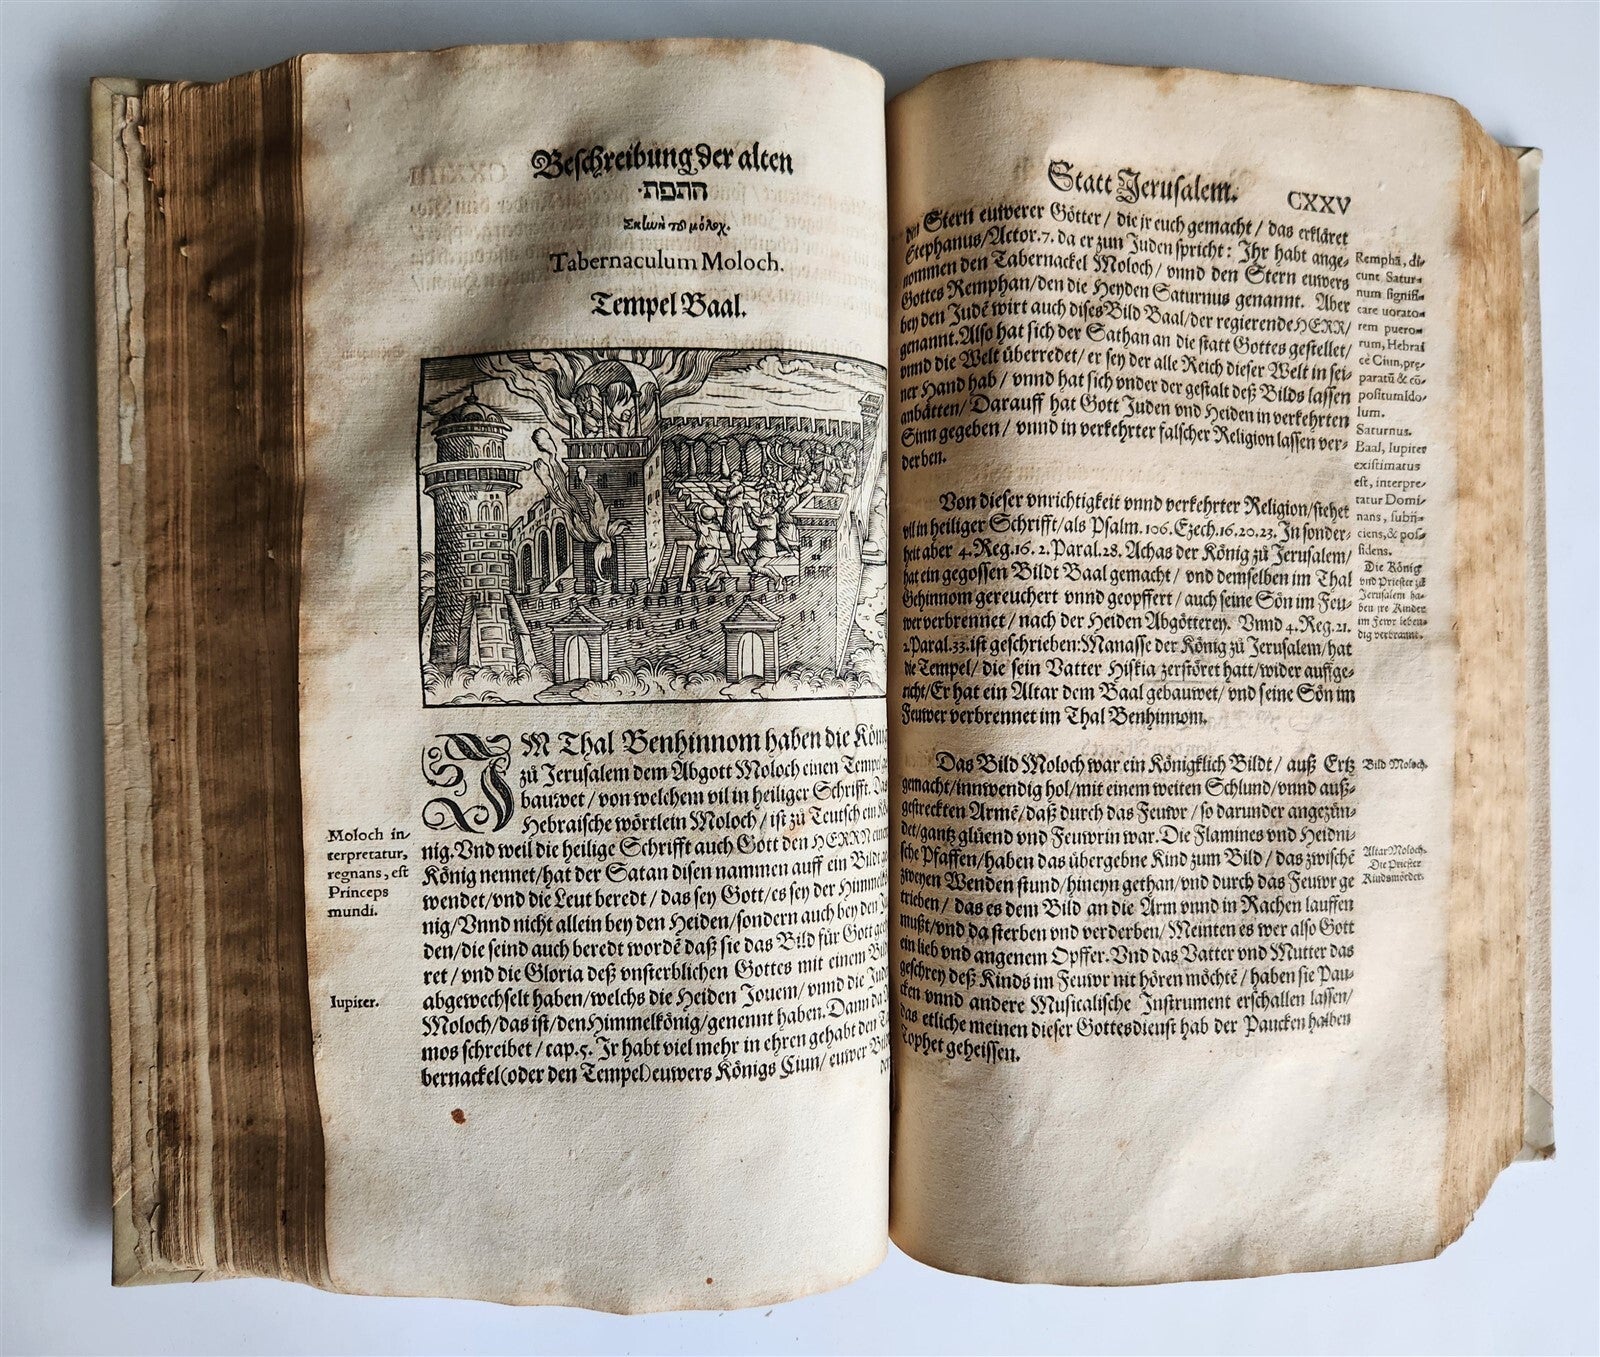 Beschreibung der alten
התפת
Σκηνὴ τοῦ μόλοχ.
Tabernaculum Moloch.
Tempel Baal.
IM Thal Benhinnom haben die Köni
zů Jerusalem dem Abgott Moloch einen Tempel
bauwet / von welchem vil in heiliger Schrifft. Das
Hebraische wörtlein Moloch / ist zů Teutsch ein Kö
nig. Vnd weil die heilige Schrifft auch Gott den HERRN einen
König nennet / hat der Satan disen nammen auff ein Bildt
wendet / vnd die Leut beredt / das sey Gott / es sey der Himmel
nig / Vnnd nicht allein bey den Heiden / sondern auch bey den
den / die seind auch beredt wordē daß sie das Bild für Gott
ret / vnd die Gloria deß vnsterblichen Gottes mit einem Bild
abgewechselt haben / welchs die Heiden Jouem / vnnd die Jude
Moloch / das ist / den Himmelkönig / genennt haben. Dann da
mos schreibet / cap. 5. Ir habt viel mehr in ehren gehabt den Ta
bernackel (oder den Tempel) euwers Königs Ciun / euwer Bild
den
Moloch in-
terpretatur,
regnans, est
Princeps
mundi.
Iupiter.
Statt Jerusalem. CXXV
den Stern euwerer Götter / die jr euch gemacht / das erkläret
Stephanus / Actor. 7. da er zun Juden spricht: Ihr habt ange-
nommen den Tabernackel Moloch / vnnd den Stern euwers
Gottes Remphan / den die Heyden Saturnus genannt. Aber
bey den Judē wirt auch dises Bild Baal / der regierende HERR /
genannt. Also hat sich der Sathan an die statt Gottes gestellet /
vnnd die Welt überredet / er sey der alle Reich dieser Welt in sei-
ner Hand hab / vnnd hat sich vnder der gestalt deß Bilds lassen
anbätten / Darauff hat Gott Juden vnd Heiden in verkehrten
Sinn gegeben / vnnd in verkehrter falscher Religion lassen ver-
derben.
Von dieser vnrichtigkeit vnnd verkehrter Religion / stehet
vil in heiliger Schrifft / als Psalm. 106. Ezech. 16. 20. 23. In sonder-
heit aber 4. Reg. 16. 2. Paral. 28. Achas der König zů Jerusalem /
hat ein gegossen Bildt Baal gemacht / vnd demselben im Thal
Gehinnom gereuchert vnnd geopffert / auch seine Sön im Feu-
wer verbrennet / nach der Heiden Abgötterey. Vnnd 4. Reg. 21.
2. Paral. 33. ist geschrieben: Manasse der König zů Jerusalem / hat
die Tempel / die sein Vatter Hiskia zerstöret hatt / wider auffge-
richt / Er hat ein Altar dem Baal gebauwet / vnd seine Sön im
Feuwer verbrennet im Thal Benhinnom.
Das Bild Moloch war ein Königklich Bildt / auß Ertz
gemacht / innwendig hol / mit einem weiten Schlund / vnnd auß-
gestreckten Armē / daß durch das Feuwr / so darunder angezün-
det / gantz glüend vnd Feuwrin war. Die Flamines vnd Heidni-
sche Pfaffen / haben das übergebne Kind zum Bild / das zwischē
zweyen Wenden stund / hineyn gethan / vnd durch das Feuwr ge
trieben / das es dem Bild an die Arm vnnd in Rachen lauffen
mußt / vnd da sterben vnd verderben / Meinten es wer also Gott
ein lieb vnd angenem Opffer. Vnd das Vatter vnd Mutter das
geschrey deß Kinds im Feuwr nit hören möchtē / haben sie Pau-
cken vnnd andere Musicalische Instrument erschallen lassen /
das etliche meinen dieser Gottesdienst hab der Paucken halben
Tophet geheissen.
Remphā, di-
cunt Satur-
num signifi-
care uorato-
rem puero-
rum, Hebrai
cè Ciun, prę-
paratū & cō-
positum Ido-
lum.
Saturnus.
Baal, Iupiter
existimatus
est, interpre-
tatur Domi-
nans, subij-
ciens, & pos-
sidens.
Die König
vnd Priester zů
Jerusalem ha-
ben jre Kinder
im Fewr leben-
dig verbrannt.
Bild Moloch.
Altar Moloch.
Die Priester
Kindsmörder.